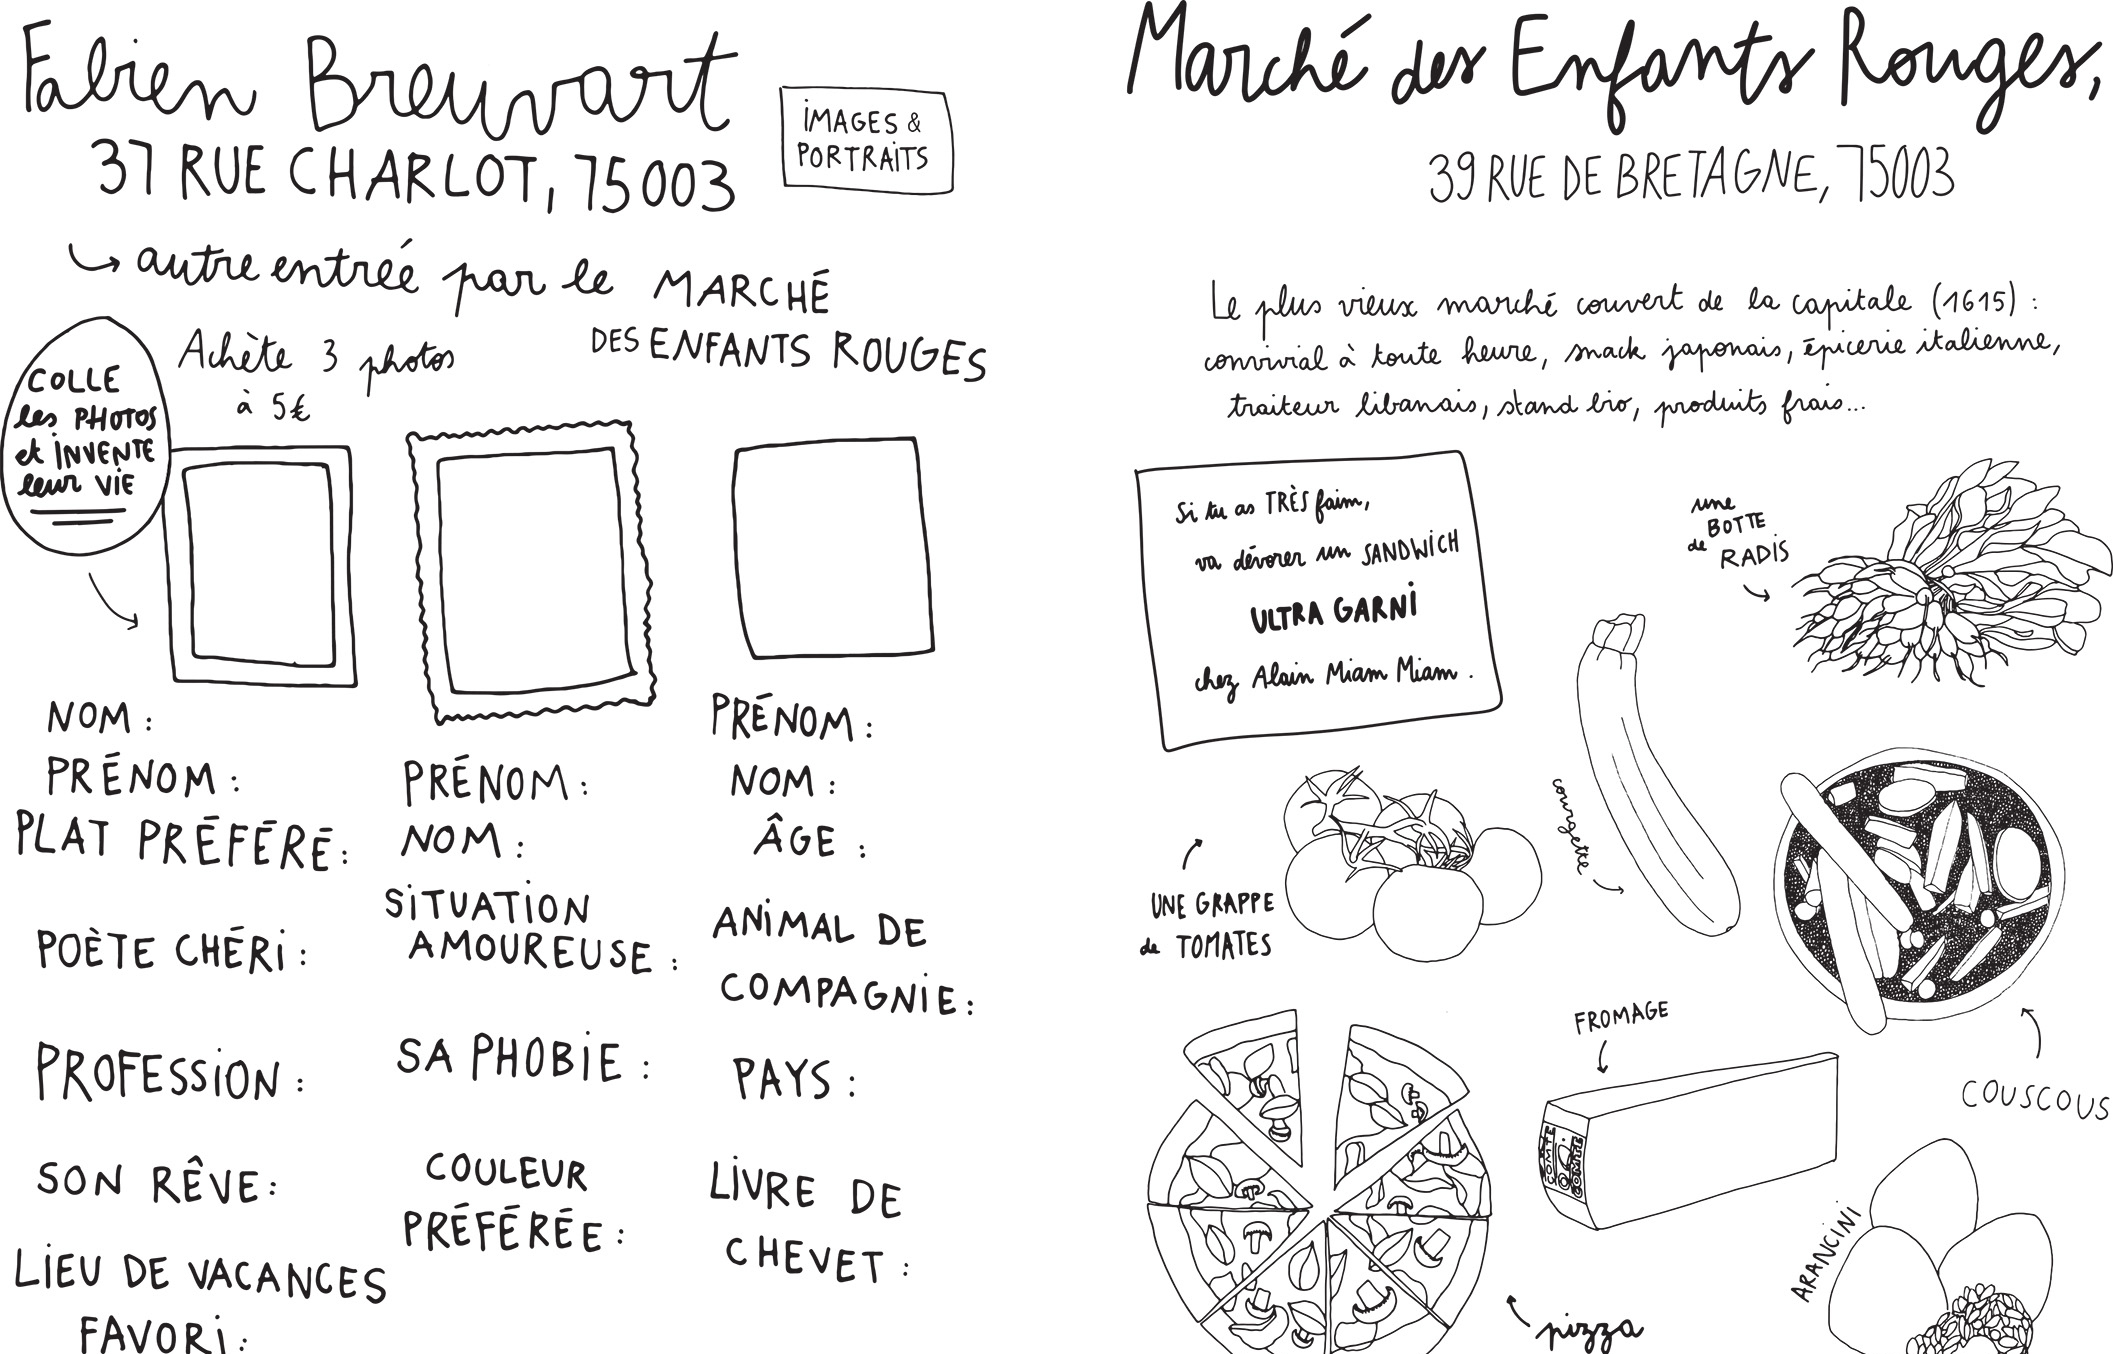 Fabien Breuvart
37 RUE CHARLOT, 75003
IMAGES &
PORTRAITS
autre entrée par le MARCHÉ
DES ENFANTS ROUGES
COLLE
les PHOTOS
et INVENTE
leur VIE
Achète 3 photos
à 5€
NOM :
PRÉNOM :
PLAT PRÉFÉRÉ :
POÈTE CHÉRI :
PROFESSION :
SON RÊVE :
LIEU DE VACANCES
FAVORI :
PRÉNOM :
NOM :
SITUATION
AMOUREUSE :
SA PHOBIE :
COULEUR
PRÉFÉRÉE :
PRÉNOM :
NOM :
ÂGE :
ANIMAL DE
COMPAGNIE :
PAYS :
LIVRE DE
CHEVET :
Marché des Enfants Rouges,
39 RUE DE BRETAGNE, 75003
Le plus vieux marché couvert de la capitale (1615) :
convivial à toute heure, snack japonais, épicerie italienne,
traiteur libanais, stand bio, produits frais...
Si tu as TRÈS faim,
va dévorer un SANDWICH
ULTRA GARNI
chez Alain Miam Miam.
une
BOTTE
de RADIS
courgette
UNE GRAPPE
de TOMATES
FROMAGE
COMTÉ
COMTÉ
COUSCOUS
ARANCINI
pizza